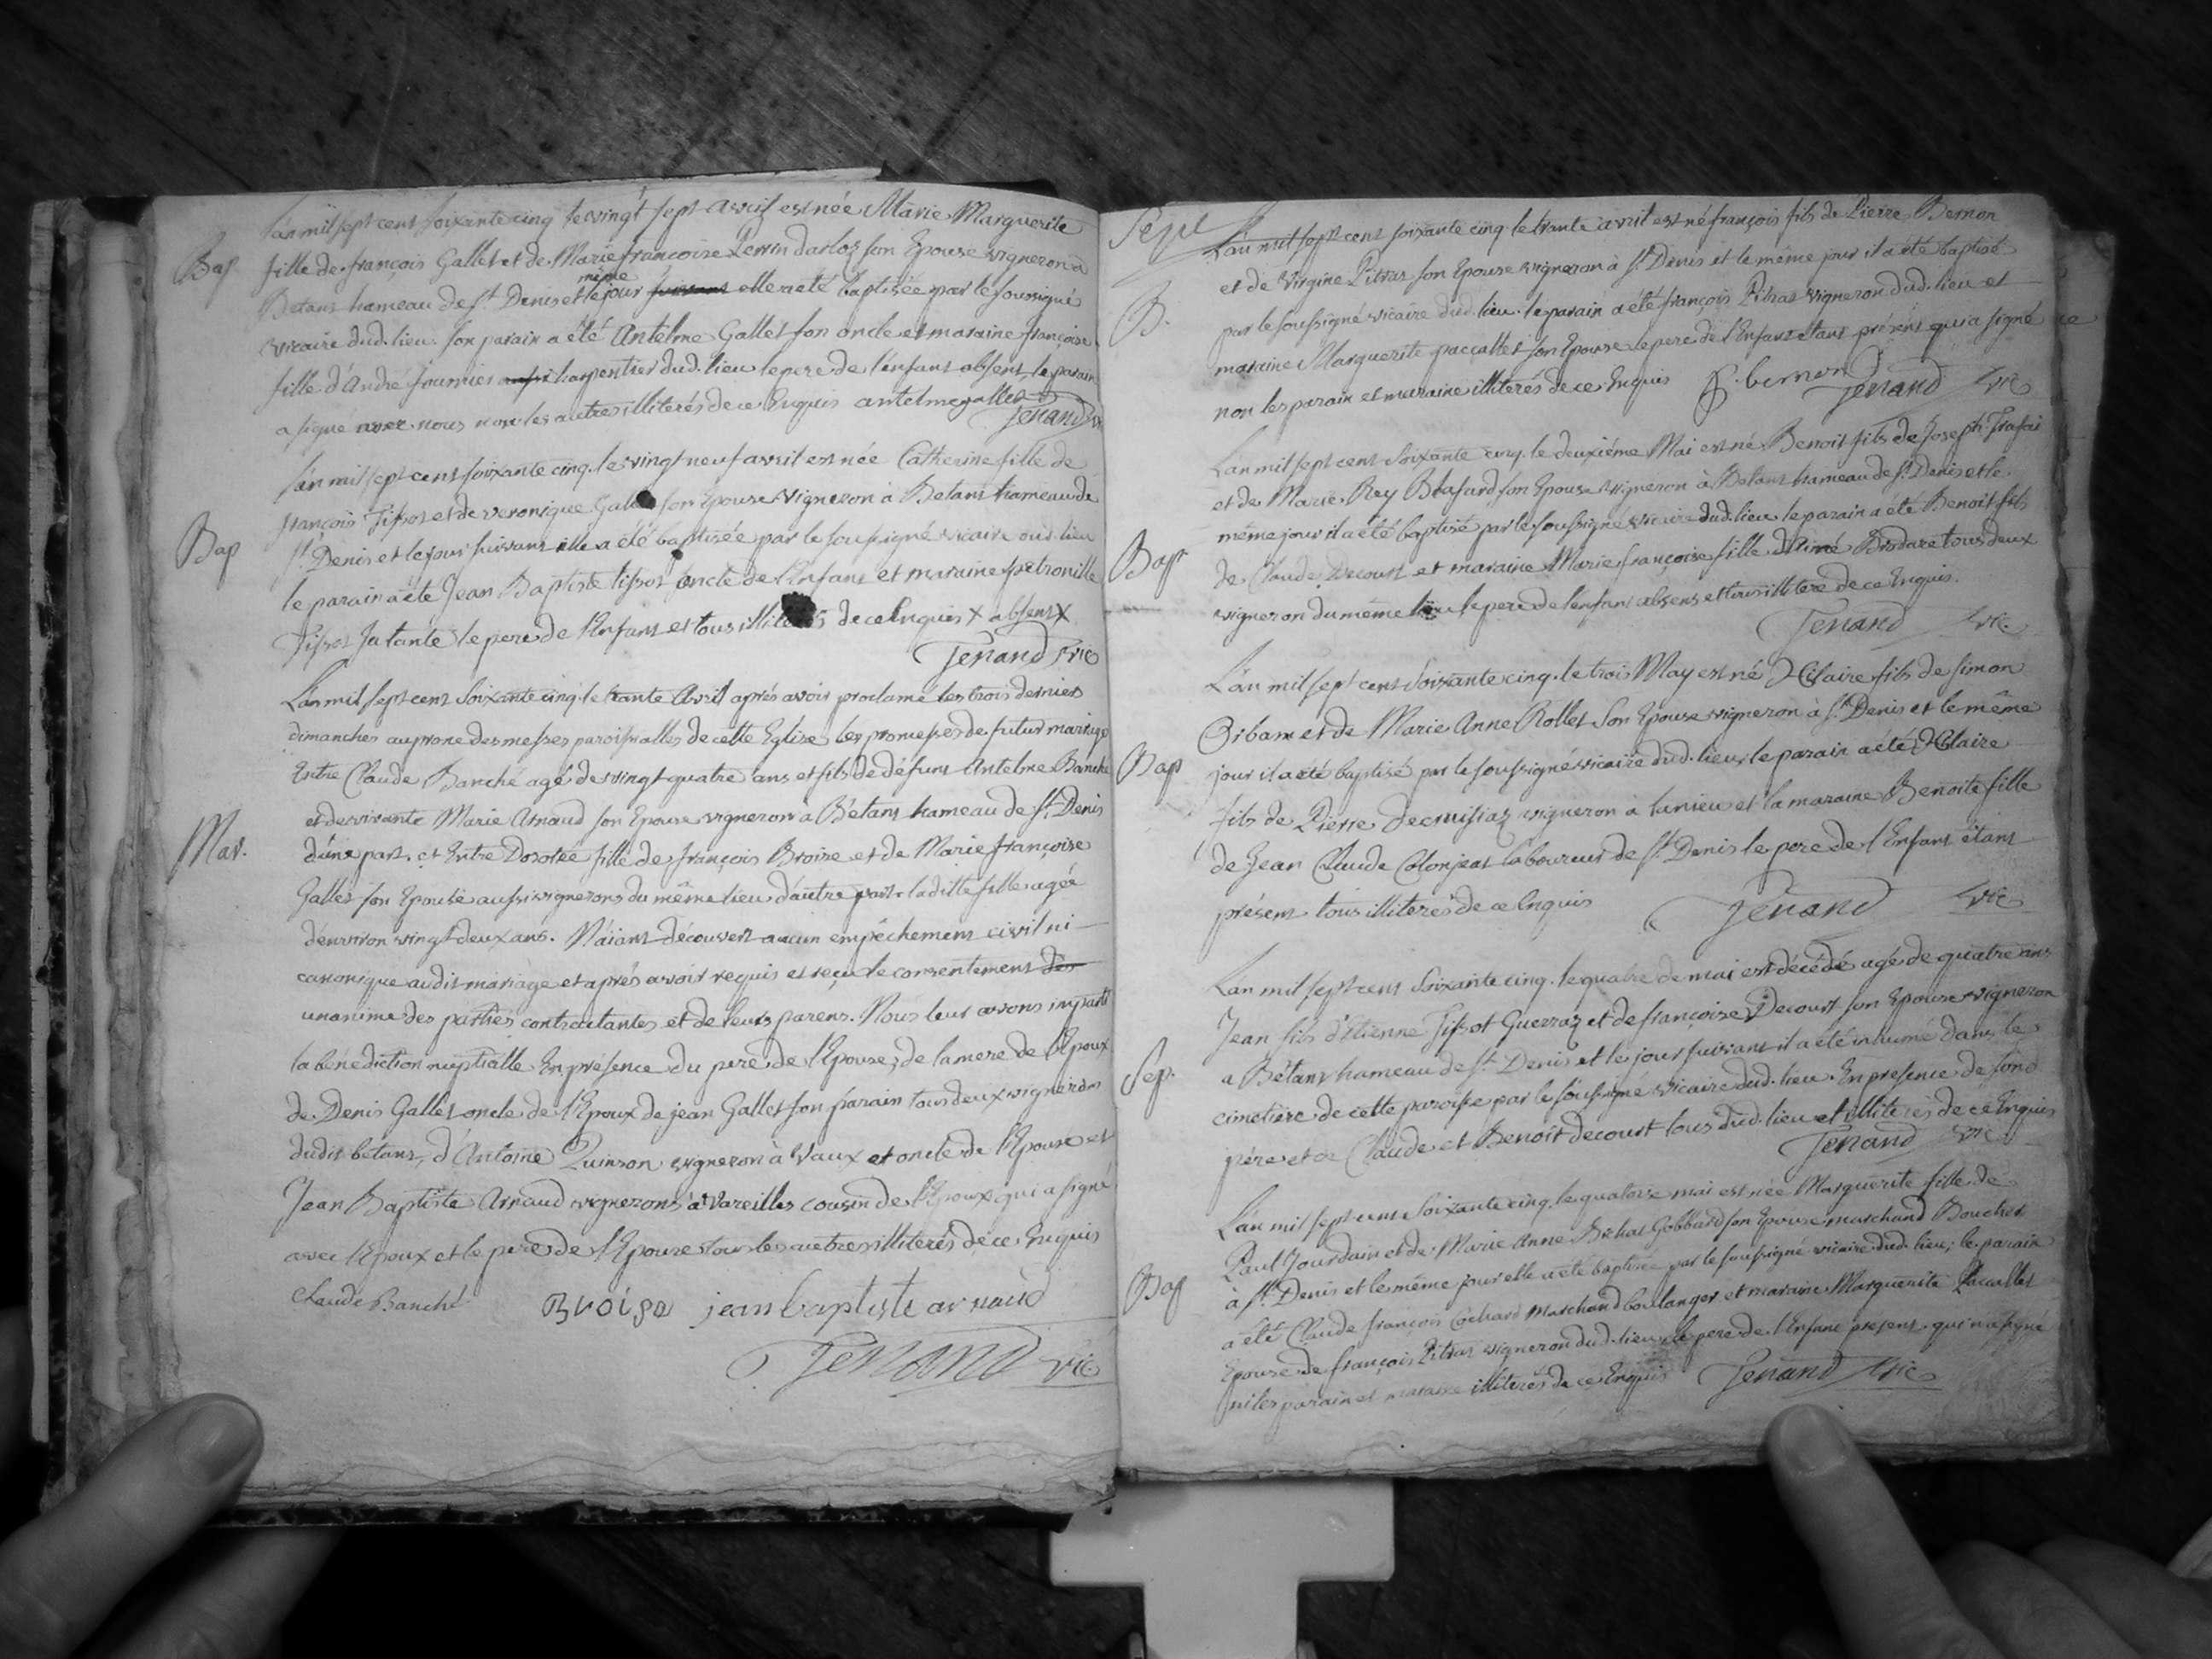 Bap
L'an mil sept cent soixante cinq le vingt sept avril est née Marie Marguerite
fille de françois Gallet et de Marie françoise Perrin darloz son Epouse vigneron a
Betans hameau de St Denis et le même jour suivant elle a été baptisée par le soussigné
vicaire dud. lieu son parain a été Antelme Gallet son oncle et maraine françoise
fille d'André fournier charpentier dud. lieu le pere de l'enfant absent le parain
a signé avec nous non les autres illiterés de ce Enquis antelme gallet
Jenand vic
Bap
L'an mil sept cent soixante cinq. le vingt neuf avril est née Catherine fille de
françois Tissot et de veronique Gallet son Epouse vigneron à Betans hameau de
St Denis et le jour suivant elle a été baptisée par le soussigné vicaire dud. lieu
le parain a été Jean Baptiste tissot oncle de l'Enfant et maraine petronille
Tissot sa tante le pere de l'Enfant et tous illiterés de ce Enquis x absent x
Jenand vic
Mar.
L'an mil sept cent soixante cinq. le trante Avril aprés avoir proclamé les trois derniers
dimanches au prone des messes paroissialles de cette Eglise les promesses de futur mariage
Entre Claude Banché agé de vingt quatre ans et fils de défunt Antelme Banché
et de vivante Marie Arnaud son Epouse vigneron à Bétans hameau de St Denis
d'une part. et Entre Dorotée fille de françois Broise et de Marie françoise
Gallet son Epouse aussi vignerons du même lieu d'autre part. la ditte fille agée
d'environ vingt deux ans. N'aiant découvert aucun empêchement civil ni
canonique audit mariage et aprés avoir requis et reçu le consentement des
unanime des parties contractantes et de leurs parens. Nous leur avons imparti
la bénediction nuptialle En présence du pere de l'Epouse, de la mere de l'Epoux
de Denis Gallet oncle de l'Epoux de jean Gallet son parain tous deux vignerons
dudit bétans, d'Antoine Quinson vigneron à Vaux et oncle de l'Epouse et
Jean Baptiste Arnaud vigneron à Vareilles cousin de l'Epoux qui a signé
avec l'Epoux et le pere de l'Epouse tous les autres illiterés de ce Enquis
Claude Banché Broise jean baptiste arnaud
Jenand vic
Sepul
B.
L'an mil sept cent soixante cinq. le trante avril est né françois fils de Pierre Bernon
et de Virgine Pitras son Epouse vigneron à St Denis et le même jour il a été baptisé
par le soussigné vicaire dud. lieu. le parain a été françois Pitras vigneron dud. lieu et
maraine Marguerite paccallet son Epouse le pere de l'Enfant étant présent qui a signé
non les parain et maraine illiterés de ce Enquis P. bernon Jenand vic
Bap
L'an mil sept cent soixante cinq. le deuxiéme Mai est né Benoit fils de Joseph
et de Marie Rey Blafard son Epouse vigneron à Betans hameau de St Denis et le
même jour il a été baptisé par le soussigné vicaire dud. lieu le parain a été Benoit fils
de Claude Decourt et maraine Marie françoise fille tous deux
vigneron du même lieu le pere de l'enfant absens et tous illiterés de ce Enquis.
Jenand vic.
Bap
L'an mil sept cent soixante cinq. le trois May est né Hilaire fils de simon
et de Marie Anne Rollet son Epouse vigneron à St Denis et le même
jour il a été baptisé par le soussigné vicaire dud. lieu, le parain a été Hilaire
fils de Pierre Decrusiaz vigneron à lanieu et la maraine Benoite fille
de Jean Claude Colonjeat laboureur de St Denis le pere de l'Enfant étant
présent tous illiterés de ce Enquis Jenand vic
Sep.
L'an mil sept cent soixante cinq. le quatre de mai est décédé agé de quatre ans
Jean fils d'Etienne Tissot Guerraz et de françoise Decourt son Epouse vigneron
a Bétans hameau de St Denis et le jour suivant il a été inhumé dans le
cimetière de cette paroisse par le soussigné vicaire dud. lieu. En presence de sond
père et de Claude et Benoit decourt tous dud. lieu et illiterés de ce Enquis
Jenand vic
Bap
L'an mil sept cent soixante cinq. le quatorze mai est née Marguerite fille de
Paul Jourdain et de Marie Anne Gobbard son Epouse marchand Boucher
à St Denis et le même jour elle a été baptisée par le soussigné vicaire dud. lieu; le parain
a été Claude françois Cochard Marchand boulanger et maraine Marguerite Paccallet
Epouse de françois Pitras vigneron dud. lieu, le pere de l'Enfant présent. qui n'a signé
ni les parain et maraine illiterés de ce Enquis Jenand vic